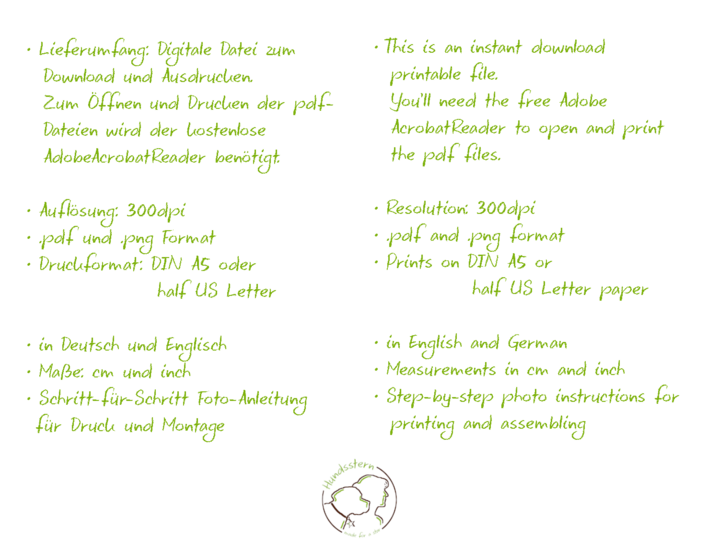 • Lieferumfang: Digitale Datei zum
Download und Ausdrucken.
Zum Öffnen und Drucken der pdf-
Dateien wird der kostenlose
AdobeAcrobatReader benötigt.
• Auflösung: 300dpi
• .pdf und .png Format
• Druckformat: DIN A5 oder
half US Letter
• in Deutsch und Englisch
• Maße: cm und inch
• Schritt-für-Schritt Foto-Anleitung
für Druck und Montage
• This is an instant download
printable file.
You'll need the free Adobe
AcrobatReader to open and print
the pdf files.
• Resolution: 300dpi
• .pdf and .png format
• Prints on DIN A5 or
half US Letter paper
• in English and German
• Measurements in cm and inch
• Step-by-step photo instructions for
printing and assembling
Hundsstern